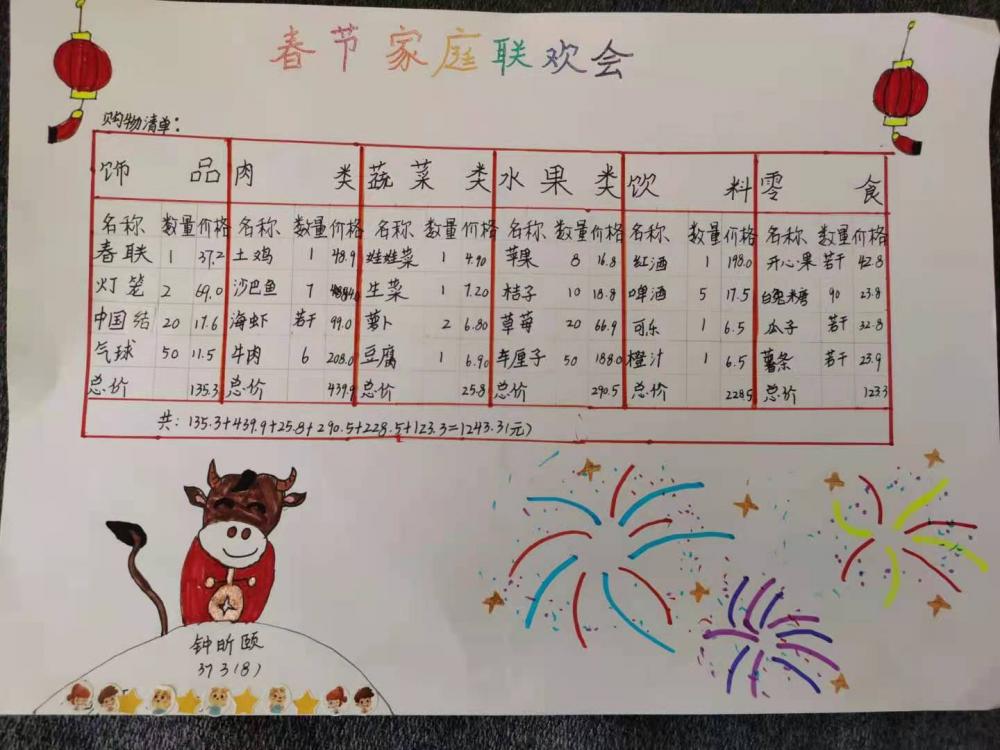 春节家庭联欢会
购物清单:
饰品 肉类 蔬菜类 水果类 饮料 零食
名称 数量 价格 名称 数量 价格 名称 数量 价格 名称 数量 价格 名称 数量 价格 名称 数量 价格
春联 1 37.2 土鸡 1 48.9 娃娃菜 1 4.90 苹果 8 16.8 红酒 1 198.0 开心果 若干 42.8
灯笼 2 69.0 沙巴鱼 7 84.0 生菜 1 7.20 桔子 10 18.8 啤酒 5 17.5 90 23.8
中国结 20 17.6 海虾 若干 99.0 萝卜 2 6.80 草莓 20 66.9 可乐 1 6.5 瓜子 若干 32.8
气球 50 11.5 牛肉 6 208.0 豆腐 1 6.90 车厘子 50 188.0 橙汁 1 6.5 薯条 若干 23.9
总价 135.3 总价 439.9 总价 25.8 总价 290.5 总价 228.5 总价 123.3
共: 135.3+439.9+25.8+290.5+228.5+123.3=1243.3(元)
钟昕颐
373(8)